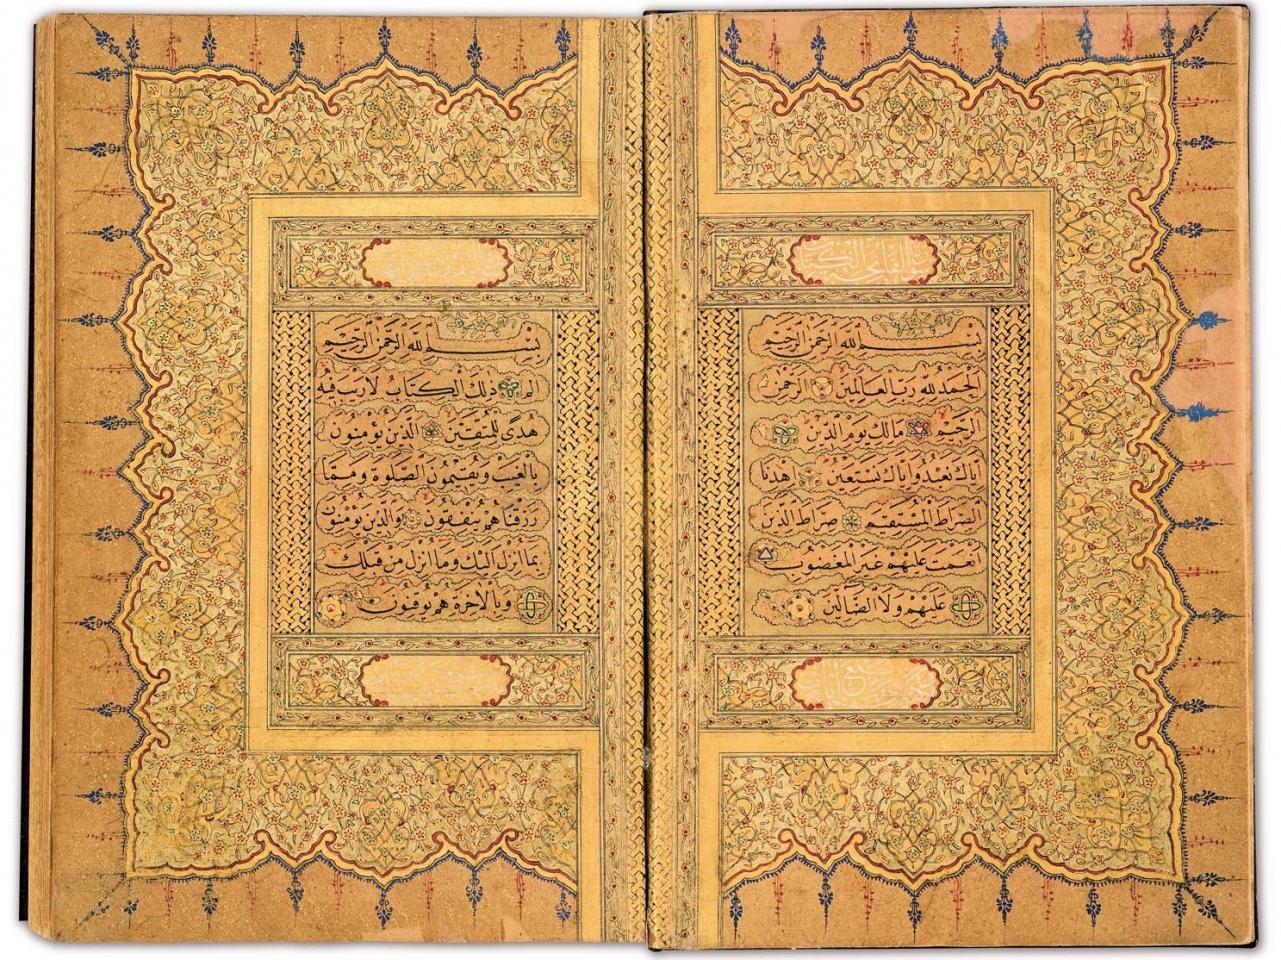 سورة الفاتحة الكتاب
بسم الله الرحمن الرحيم
الحمد لله رب العالمين الرحمن
الرحيم مالك يوم الدين
اياك نعبد واياك نستعين اهدنا
الصراط المستقيم صراط الذين
انعمت عليهم غير المغضوب
عليهم ولا الضالين
سبع آيات
بسم الله الرحمن الرحيم
الم ذلك الكتاب لا ريب فيه
هدى للمتقين الذين يؤمنون
بالغيب ويقيمون الصلوة ومما
رزقناهم ينفقون والذين يؤمنون
بما انزل اليك وما انزل من قبلك
وبالاخرة هم يوقنون